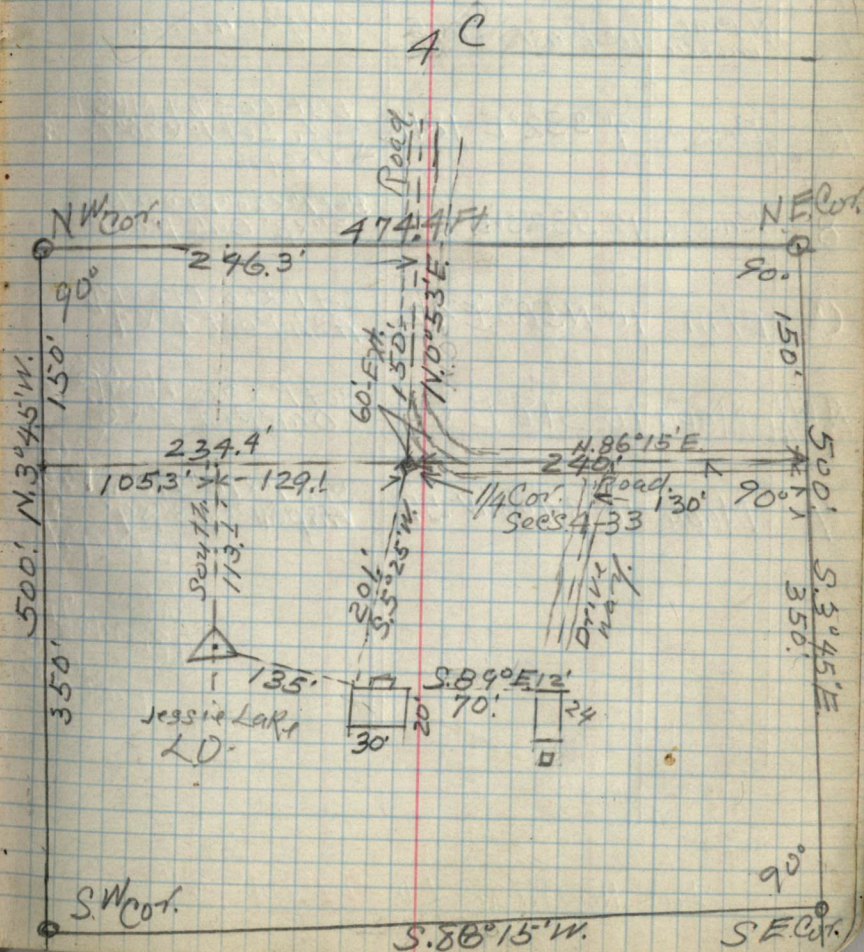 4 C
Road
474.4 Ft.
NW Cor.
N.E. Cor.
246.3'
90°
90°
150'
N.0°53'E.
150'
60' Ext.
150'
500' N.3°45'W.
234.4'
N.86°15'E.
240'
105.3'
129.1
1/4 Cor.
Sec's 4-33
Road
130'
90°
500' S.3°45'E.
South
113.1
201'
S.5°25'W.
Drive
way.
350'
350'
135'
S.89°E.
12'
70'
20'
24
30'
Jessie Lake
L.O.
90°
S.W Cor.
S.86°15'W.
S E. Cor.